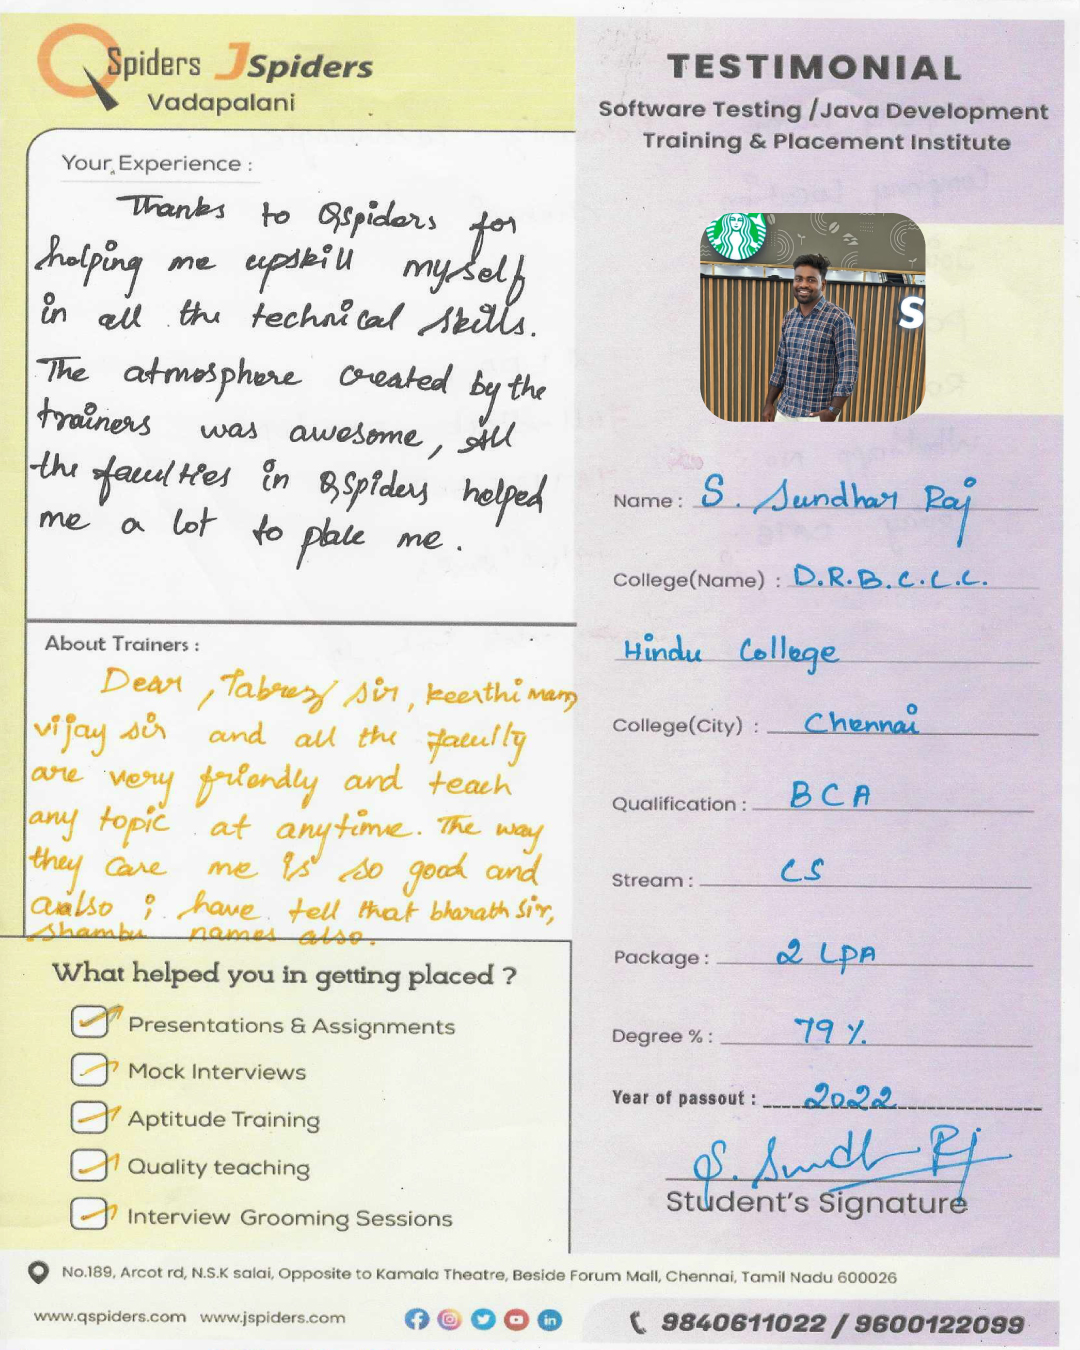 QSpiders JSpiders
Vadapalani
TESTIMONIAL
Software Testing /Java Development
Training & Placement Institute
Your Experience :
Thanks to Qspiders for
helping me upskill myself
in all the technical skills.
The atmosphere created by the
trainers was awesome, All
the faculties in QSpiders helped
me a lot to place me.
S
Name : S. Sundhar Raj
College(Name) : D.R.B.C.C.C.
Hindu College
College(City) : Chennai
Qualification : BCA
Stream : CS
Package : 2 LPA
Degree % : 79 %
Year of passout : 2022
S. Sundh Rj
Student's Signature
About Trainers :
Dear, Tabrez sir, keerthi mam,
vijay sir and all the faculty
are very friendly and teach
any topic at anytime. The way
they care me is so good and
also i have tell that bharath sir,
shambu names also.
What helped you in getting placed ?
Presentations & Assignments
Mock Interviews
Aptitude Training
Quality teaching
Interview Grooming Sessions
No.189, Arcot rd, N.S.K salai, Opposite to Kamala Theatre, Beside Forum Mall, Chennai, Tamil Nadu 600026
www.qspiders.com www.jspiders.com
9840611022 / 9600122099